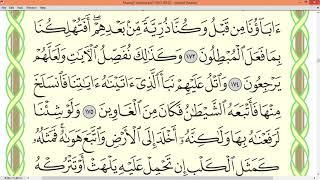 ءَابَآؤُنَا مِن قَبْلُ وَكُنَّا ذُرِّيَّةً مِّنۢ بَعْدِهِمْ ۖ أَفَتُهْلِكُنَا
بِمَا فَعَلَ ٱلْمُبْطِلُونَ ١٧٣ وَكَذَٰلِكَ نُفَصِّلُ ٱلْءَايَٰتِ وَلَعَلَّهُمْ
يَرْجِعُونَ ١٧٤ وَٱتْلُ عَلَيْهِمْ نَبَأَ ٱلَّذِىٓ ءَاتَيْنَٰهُ ءَايَٰتِنَا فَٱنسَلَخَ
مِنْهَا فَأَتْبَعَهُ ٱلشَّيْطَٰنُ فَكَانَ مِنَ ٱلْغَاوِينَ ١٧٥ وَلَوْ شِئْنَا
لَرَفَعْنَٰهُ بِهَا وَلَٰكِنَّهُۥٓ أَخْلَدَ إِلَى ٱلْأَرْضِ وَٱتَّبَعَ هَوَىٰهُ ۚ فَمَثَلُهُۥ
كَمَثَلِ ٱلْكَلْبِ إِن تَحْمِلْ عَلَيْهِ يَلْهَثْ أَوْ تَتْرُكْهُ